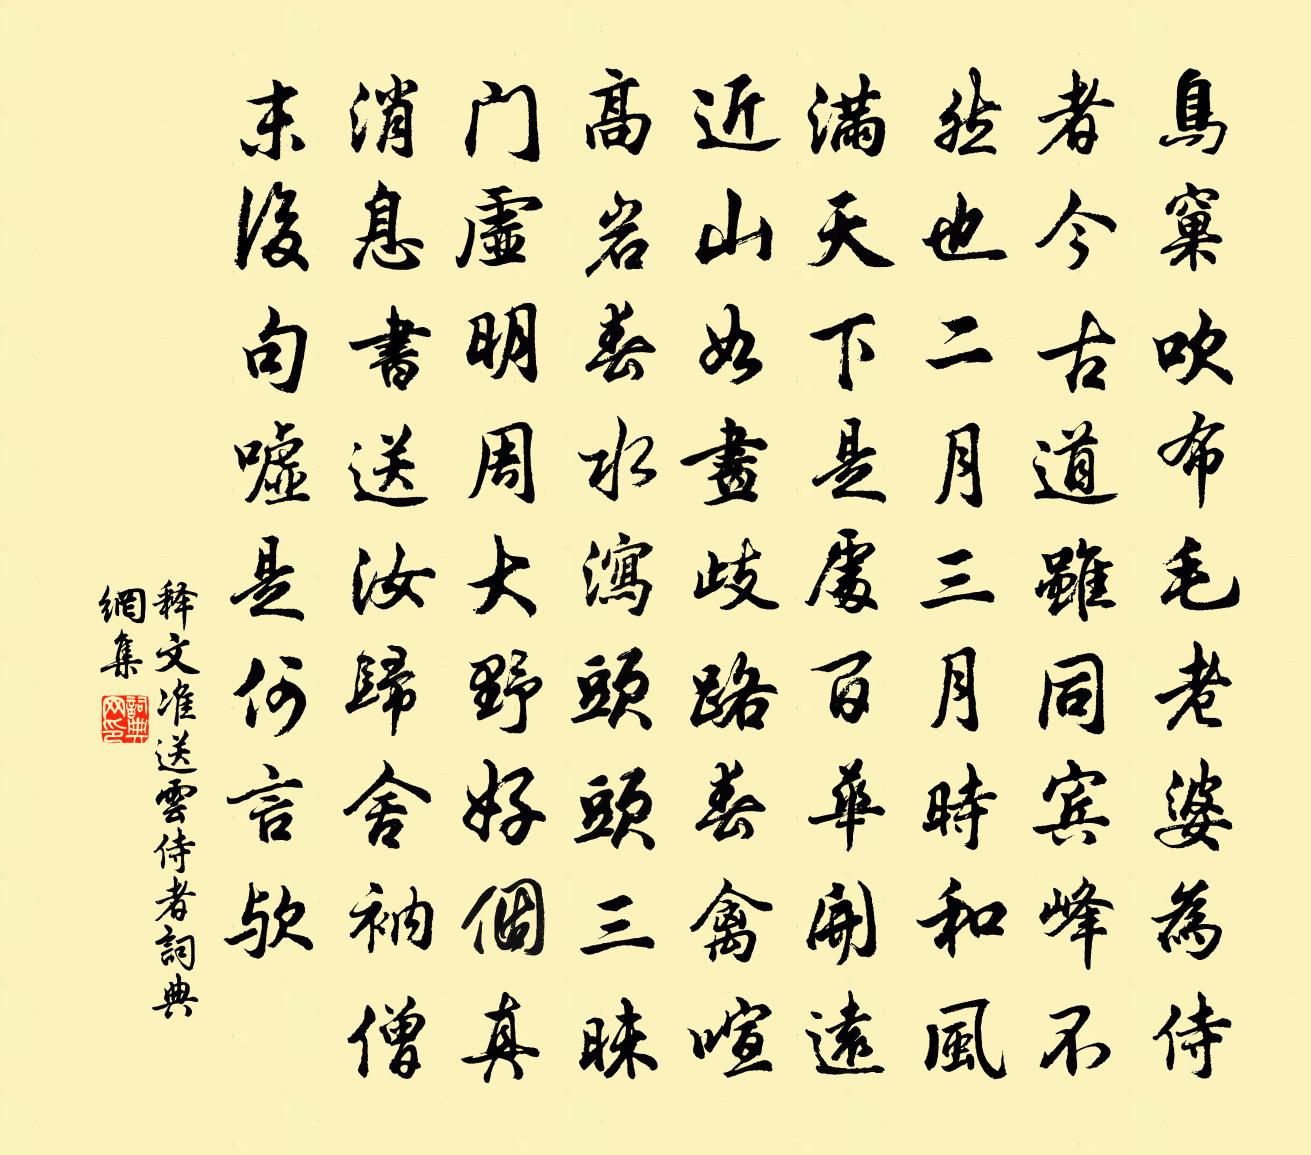 鳥窠吹布毛老婆為侍
者今古道雖同宾峰不
然也二月三月時和風
滿天下是處百華開遠
近山如畫歧路春禽喧
高岩春水瀉頭頭三昧
门虛明周大野好個真
消息書送汝歸舍衲僧
末後句噓是何言歟
释文准送雲侍者詞典
網集